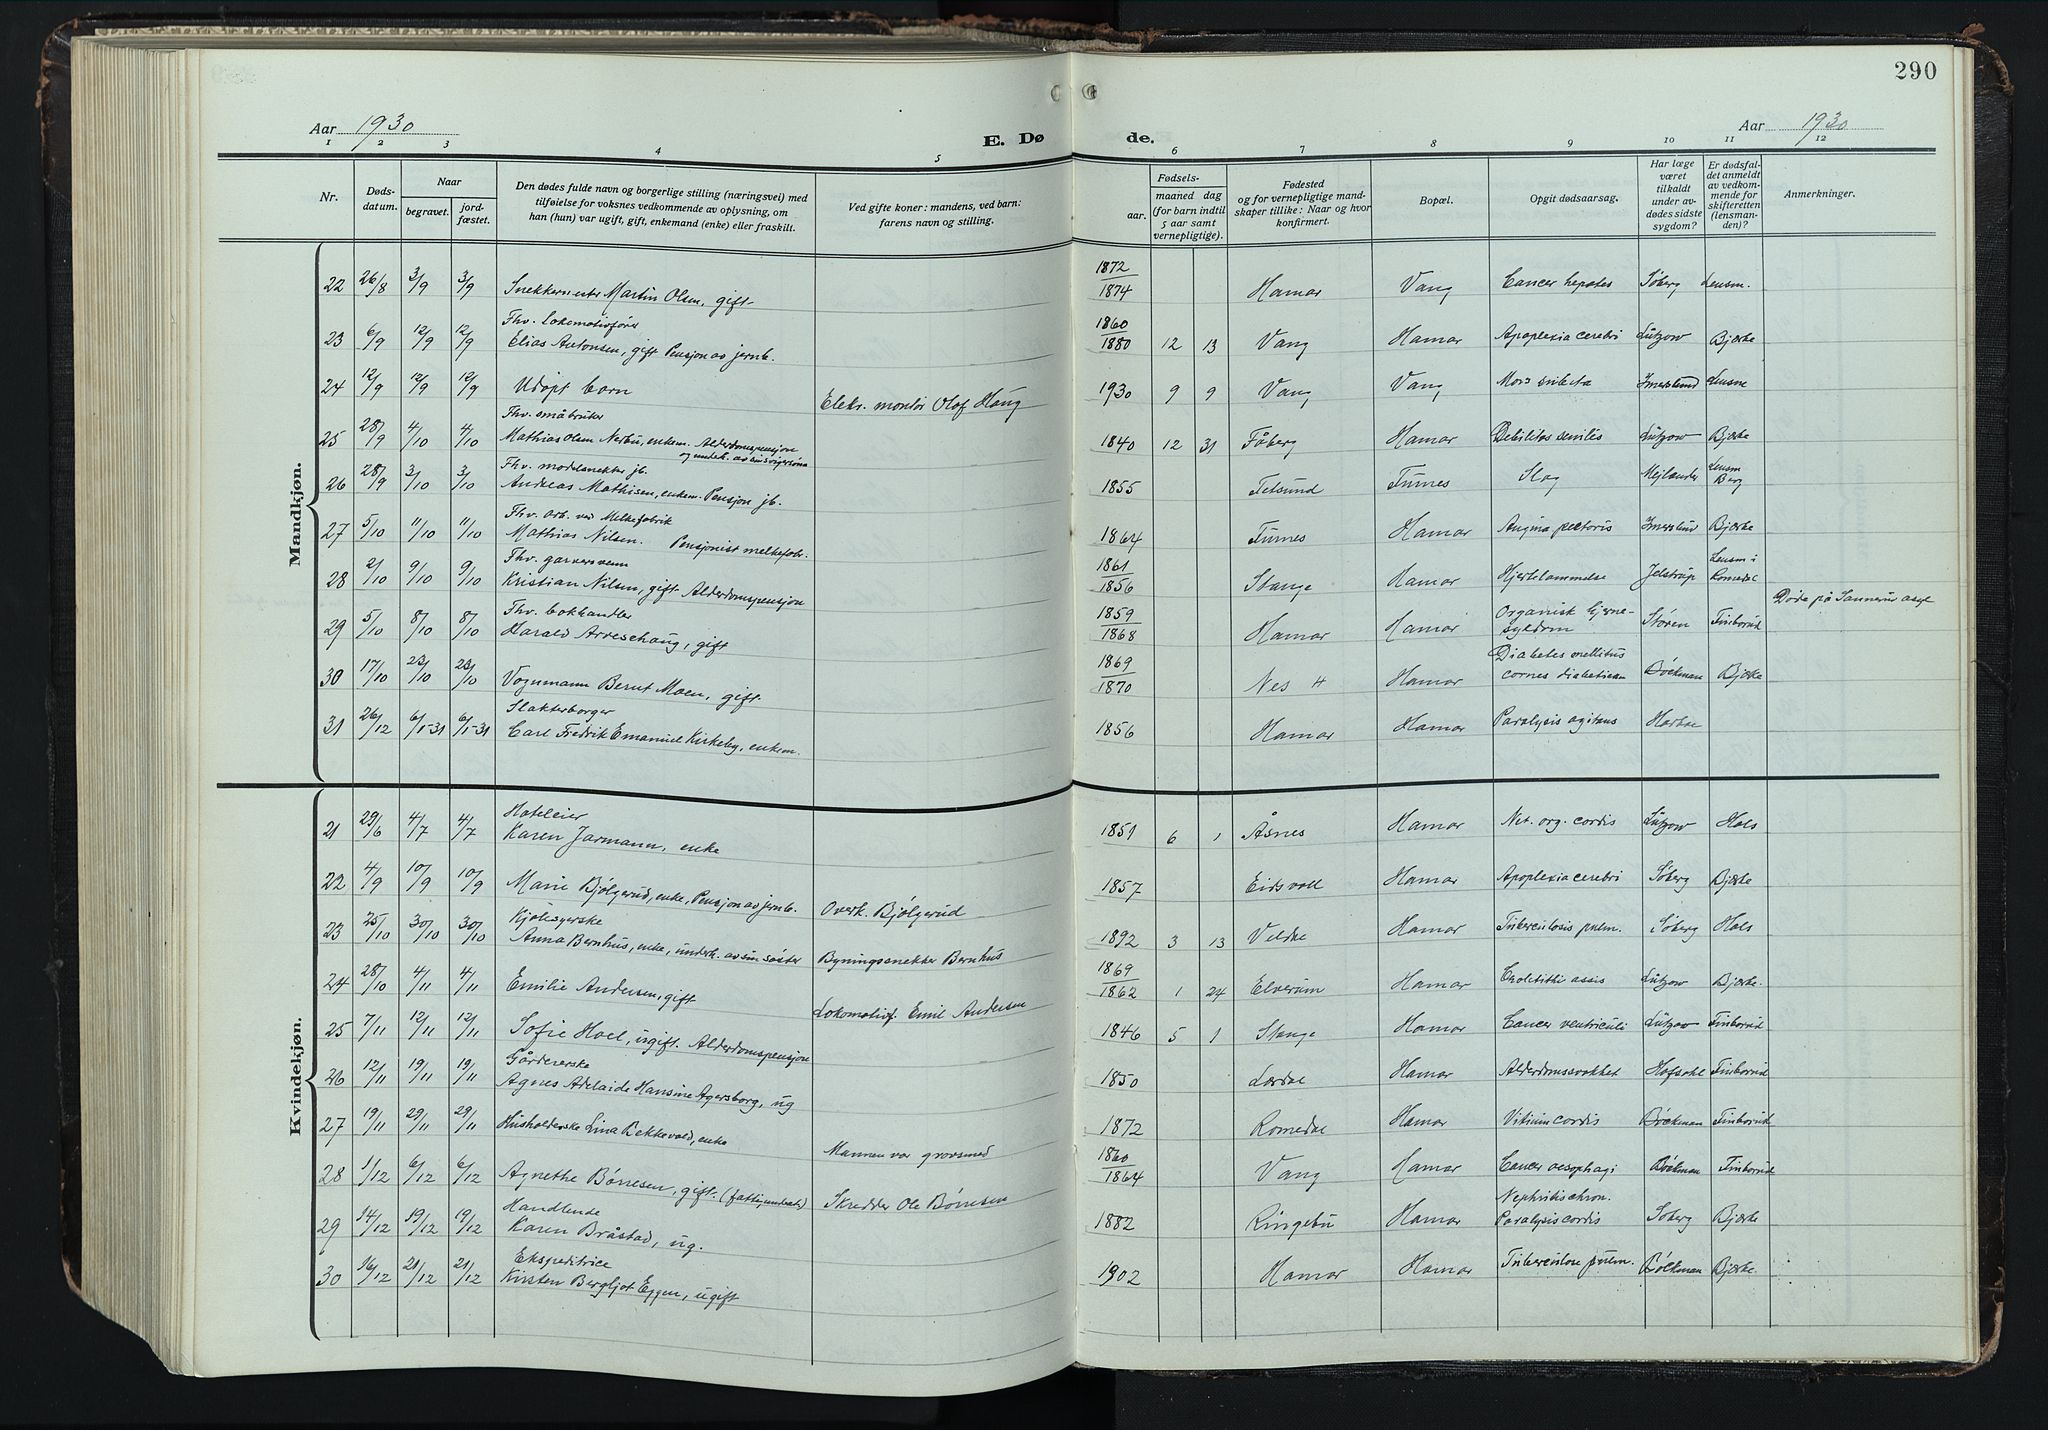 290
Aar 1930
E. Dø
de.
Aar 1930
1 2 3 4 5 6 7 8 9 10 11 12
Nr.
Døds-
datum.
Naar
begravet.
jord-
fæstet.
Den dødes fulde navn og borgerlige stilling (næringsvei) med
tilføielse for voksnes vedkommende av oplysning, om
han (hun) var ugift, gift, enkemand (enke) eller fraskilt.
Ved gifte koner: mandens, ved barn:
farens navn og stilling.
Fødsels-
aar.
maaned dag
(for barn indtil
5 aar samt
vernepligtige).
Fødested
og for vernepligtige mand-
skaper tillike: Naar og hvor
konfirmert.
Bopæl.
Opgit dødsaarsag.
Har læge
været
tilkaldt
under av-
dødes sidste
sygdom?
Er dødsfal-
det anmeldt
av vedkom-
mende for
skifteretten
(lensman-
den)?
Anmerkninger.
Mandkjøn.
22 26/8 3/9 3/9 Snekkermester Martin Olsen, gift 1872/1874 Hamar Vang Cancer hepates Søberg Lensm.
Fhv. Lokomotivfører
23 6/9 12/9 12/9 Elias Antonsen, gift Pensjon av jernb. 1860/1880 12 13 Vang Hamar Apoplexia cerebri Lützow Bjerke
24 12/9 12/9 12/9 Udøpt barn Elektr. montør Olof Haug 1930 9 9 Vang Vang Mors subita Imerslund Lensm
Fhv. småbruker
25 28/9 4/10 4/10 Mathias Olsen Nerbu, enkem. Alderdomspensjon 1840 12 31 Fåberg Hamar Debilitas senilis Lützow Bjerke
og underh. av sin svigersønn
Fhv. modelsnekker jb.
26 28/9 3/10 3/10 Andreas Mathisen, enkem. Pensjon jb. 1855 Fetsund Furnes Slag Mejlænder Lensm Berg
Fhv. Arb. ved Melkefabrik
27 5/10 11/10 11/10 Mathias Nilsen. Pensjonist melkefabr. 1864 Furnes Hamar Angina pectoris Imerslund Bjerke
Fhv. garversvenn
28 2/10 9/10 9/10 Kristian Nilsen, gift. Alderdomspensjon 1861/1856 Stange Hamar Hjertelammelse Jelstrup Lensm i Romedal
Fhv. bokhandler
29 5/10 8/10 8/10 Harald Arveschoug, gift 1859/1868 Hamar Hamar Organisk hjerne-
sykdom Støren Finborud Døde på Sannerud asyl
30 17/10 23/10 23/10 Vognmann Bernt Moen, gift 1869/1870 Nes H Hamar Diabetes mellitus
comes diabeticum Bøckman Bjerke
Slakterborger
31 26/12 6/1-31 6/1-31 Carl Fredrik Emanuel Kirkeby, enkem. 1856 Hamar Hamar Paralysis agitans Harboe
Kvindekjøn.
Hoteleier
21 29/6 4/7 4/7 Karen Jarmann, enke 1851 6 1 Åsnes Hamar Vit. org. cordis Lützow Hols
22 4/9 10/9 10/9 Marie Bjølgerud, enke, Pensjon av jernb. Overk. Bjølgerud 1857 Eidsvoll Hamar Apoplexia cerebri Søberg Bjerke
Kjolesyerske
23 25/10 30/10 30/10 Anna Bernhus, enke, underh. av sin søster Bygningssnekker Bernhus 1892 3 13 Veldre Hamar Tuberculosis pulm. Søberg Hols
24 28/10 4/11 4/11 Emilie Andersen, gift Lokomotivf. Emil Andersen 1869/1862 1 24 Elverum Hamar Cholelithiassis Lützow Bjerke.
25 7/11 12/11 12/11 Sofie Hoel, ugift. Alderdomspensjon 1846 5 1 Stange Hamar Cancer ventriculi Lützow Finborud
Gårdeierske
26 12/11 19/11 19/11 Agnes Adelaide Hansine Agersborg, ug 1850 Lærdal Hamar Alderdomssvakhet Hofsahl Finborud
27 19/11 29/11 29/11 Husholderske Lina Bekkevold, enke Mannen var grovsmed 1872 Romedal Hamar Vitium cordis Bøckman Finborud
28 1/12 6/12 6/12 Agnethe Børresen, gift. (fattigunderst.) Skredder Ole Børresen 1860/1864 Vang Hamar Cancer oesophagi Bøckman Finborud
Handlende
29 14/12 19/12 19/12 Karen Bråstad, ug. 1882 Ringebu Hamar Nephritis chron.
Paralysis cordis Søberg Bjerke
Ekspeditrice
30 16/12 21/12 21/12 Kirsten Bergljot Eggen, ugift 1902 Hamar Hamar Tuberculose pulm. Bøckman Bjerke.